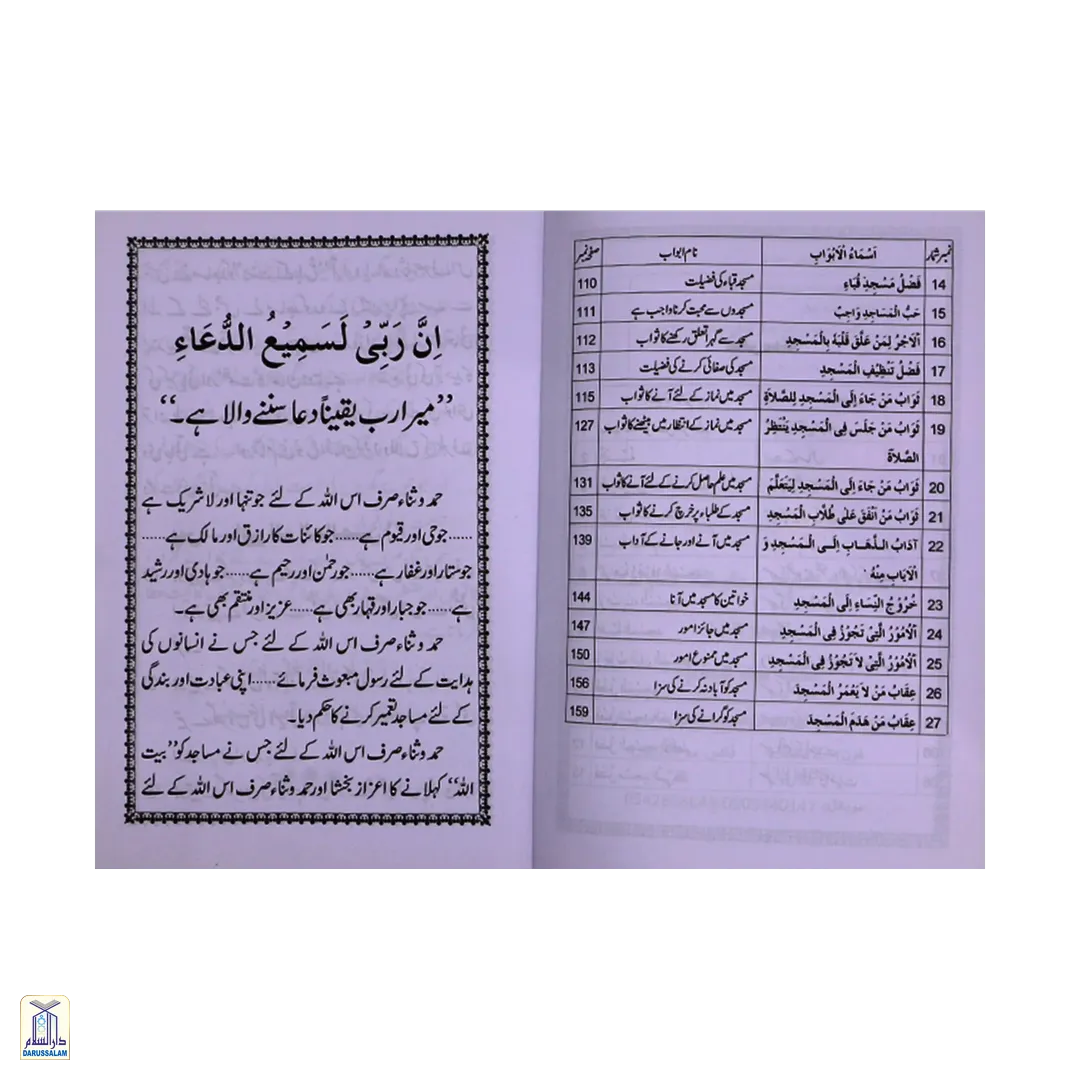 نمبر شمار اَسْمَاءُ الْاَبْوَابِ نام ابواب صفحہ نمبر
14 فَضْلُ مَسْجِدِ قُبَاءِ مسجد قباء کی فضیلت 110
15 حَبُّ الْمَسَاجِدِ وَاجِبٌ مسجدوں سے محبت کرنا واجب ہے 111
16 اَلْاَجْرُ لِمَنْ عَلَّقَ قَلْبَهُ بِالْمَسْجِدِ مسجد سے گہرا تعلق رکھنے کا ثواب 112
17 فَضْلُ تَنْظِيْفِ الْمَسْجِدِ مسجد کی صفائی کرنے کی فضیلت 113
18 ثَوَابُ مَنْ جَاءَ اِلَى الْمَسْجِدِ لِلصَّلَاةِ مسجد میں نماز کے لئے آنے کا ثواب 115
19 ثَوَابُ مَنْ جَلَسَ فِى الْمَسْجِدِ يَنْتَظِرُ مسجد میں نماز کے انتظار میں بیٹھنے کا ثواب 127
الصَّلَاةَ
20 ثَوَابُ مَنْ جَاءَ اِلَى الْمَسْجِدِ لِيَتَعَلَّمَ مسجد میں علم حاصل کرنے کے لئے آنے کا ثواب 131
21 ثَوَابُ مَنْ اَنْفَقَ عَلٰى طُلَّابِ الْمَسْجِدِ مسجد کے طلباء پر خرچ کرنے کا ثواب 135
22 آدَابُ الذَّهَابِ اِلَى الْمَسْجِدِ وَ مسجد میں آنے اور جانے کے آداب 139
الْاِيَابِ مِنْهُ
23 خُرُوْجُ النِّسَاءِ اِلَى الْمَسْجِدِ خواتین کا مسجد میں آنا 144
24 اَلْاُمُوْرُ الَّتِىْ تَجُوْزُ فِى الْمَسْجِدِ مسجد میں جائز امور 147
25 اَلْاُمُوْرُ الَّتِىْ لَا تَجُوْزُ فِى الْمَسْجِدِ مسجد میں ممنوع امور 150
26 عِقَابُ مَنْ لَا يَعْمُرُ الْمَسْجِدَ مسجد کو آباد نہ کرنے کی سزا 156
27 عِقَابُ مَنْ هَدَمَ الْمَسْجِدَ مسجد کو گرانے کی سزا 159
اِنَّ رَبِّىْ لَسَمِيْعُ الدُّعَاءِ
’’میرا رب یقیناً دعا سننے والا ہے۔‘‘
حمد و ثناء صرف اس اللہ کے لئے جو تنہا اور لاشریک ہے
......جو حی اور قیوم ہے......جو کائنات کا رازق اور مالک ہے......
جو ستار اور غفار ہے......جو رحمٰن اور رحیم ہے......جو ہادی اور رشید
ہے......جو جبار اور قہار بھی ہے......عزیز اور منتقم بھی ہے۔
حمد و ثناء صرف اس اللہ کے لئے جس نے انسانوں کی
ہدایت کے لئے رسول مبعوث فرمائے......اپنی عبادت اور بندگی
کے لئے مساجد تعمیر کرنے کا حکم دیا۔
حمد و ثناء صرف اس اللہ کے لئے جس نے مساجد کو ’’بیت
اللہ‘‘ کہلانے کا اعزاز بخشا اور حمد و ثناء صرف اس اللہ کے لئے
دارالسلام
DARUSSALAM